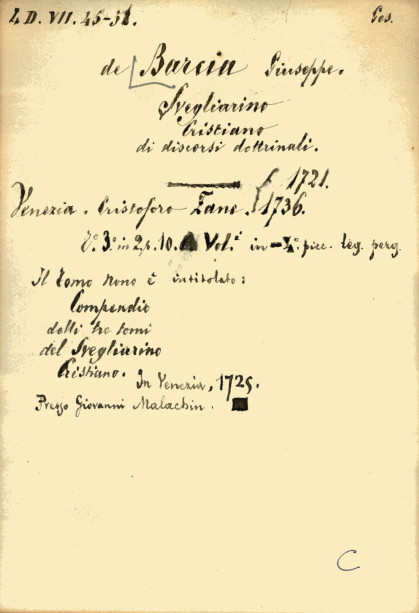 4 D. VII. 45-52. Ges.
de Barcia Giuseppe.
Svegliarino
Cristiano
di discorsi dottrinali.
1721.
Venezia. Cristoforo Zane. 1736.
in 2, p. 10. Vol.i in-4°. picc. leg. perg.
Il Tomo Nono è intitolato:
Compendio
delli tre tomi
del Svegliarino
Cristiano. In Venezia, 1725.
Presso Giovanni Malachin.
C